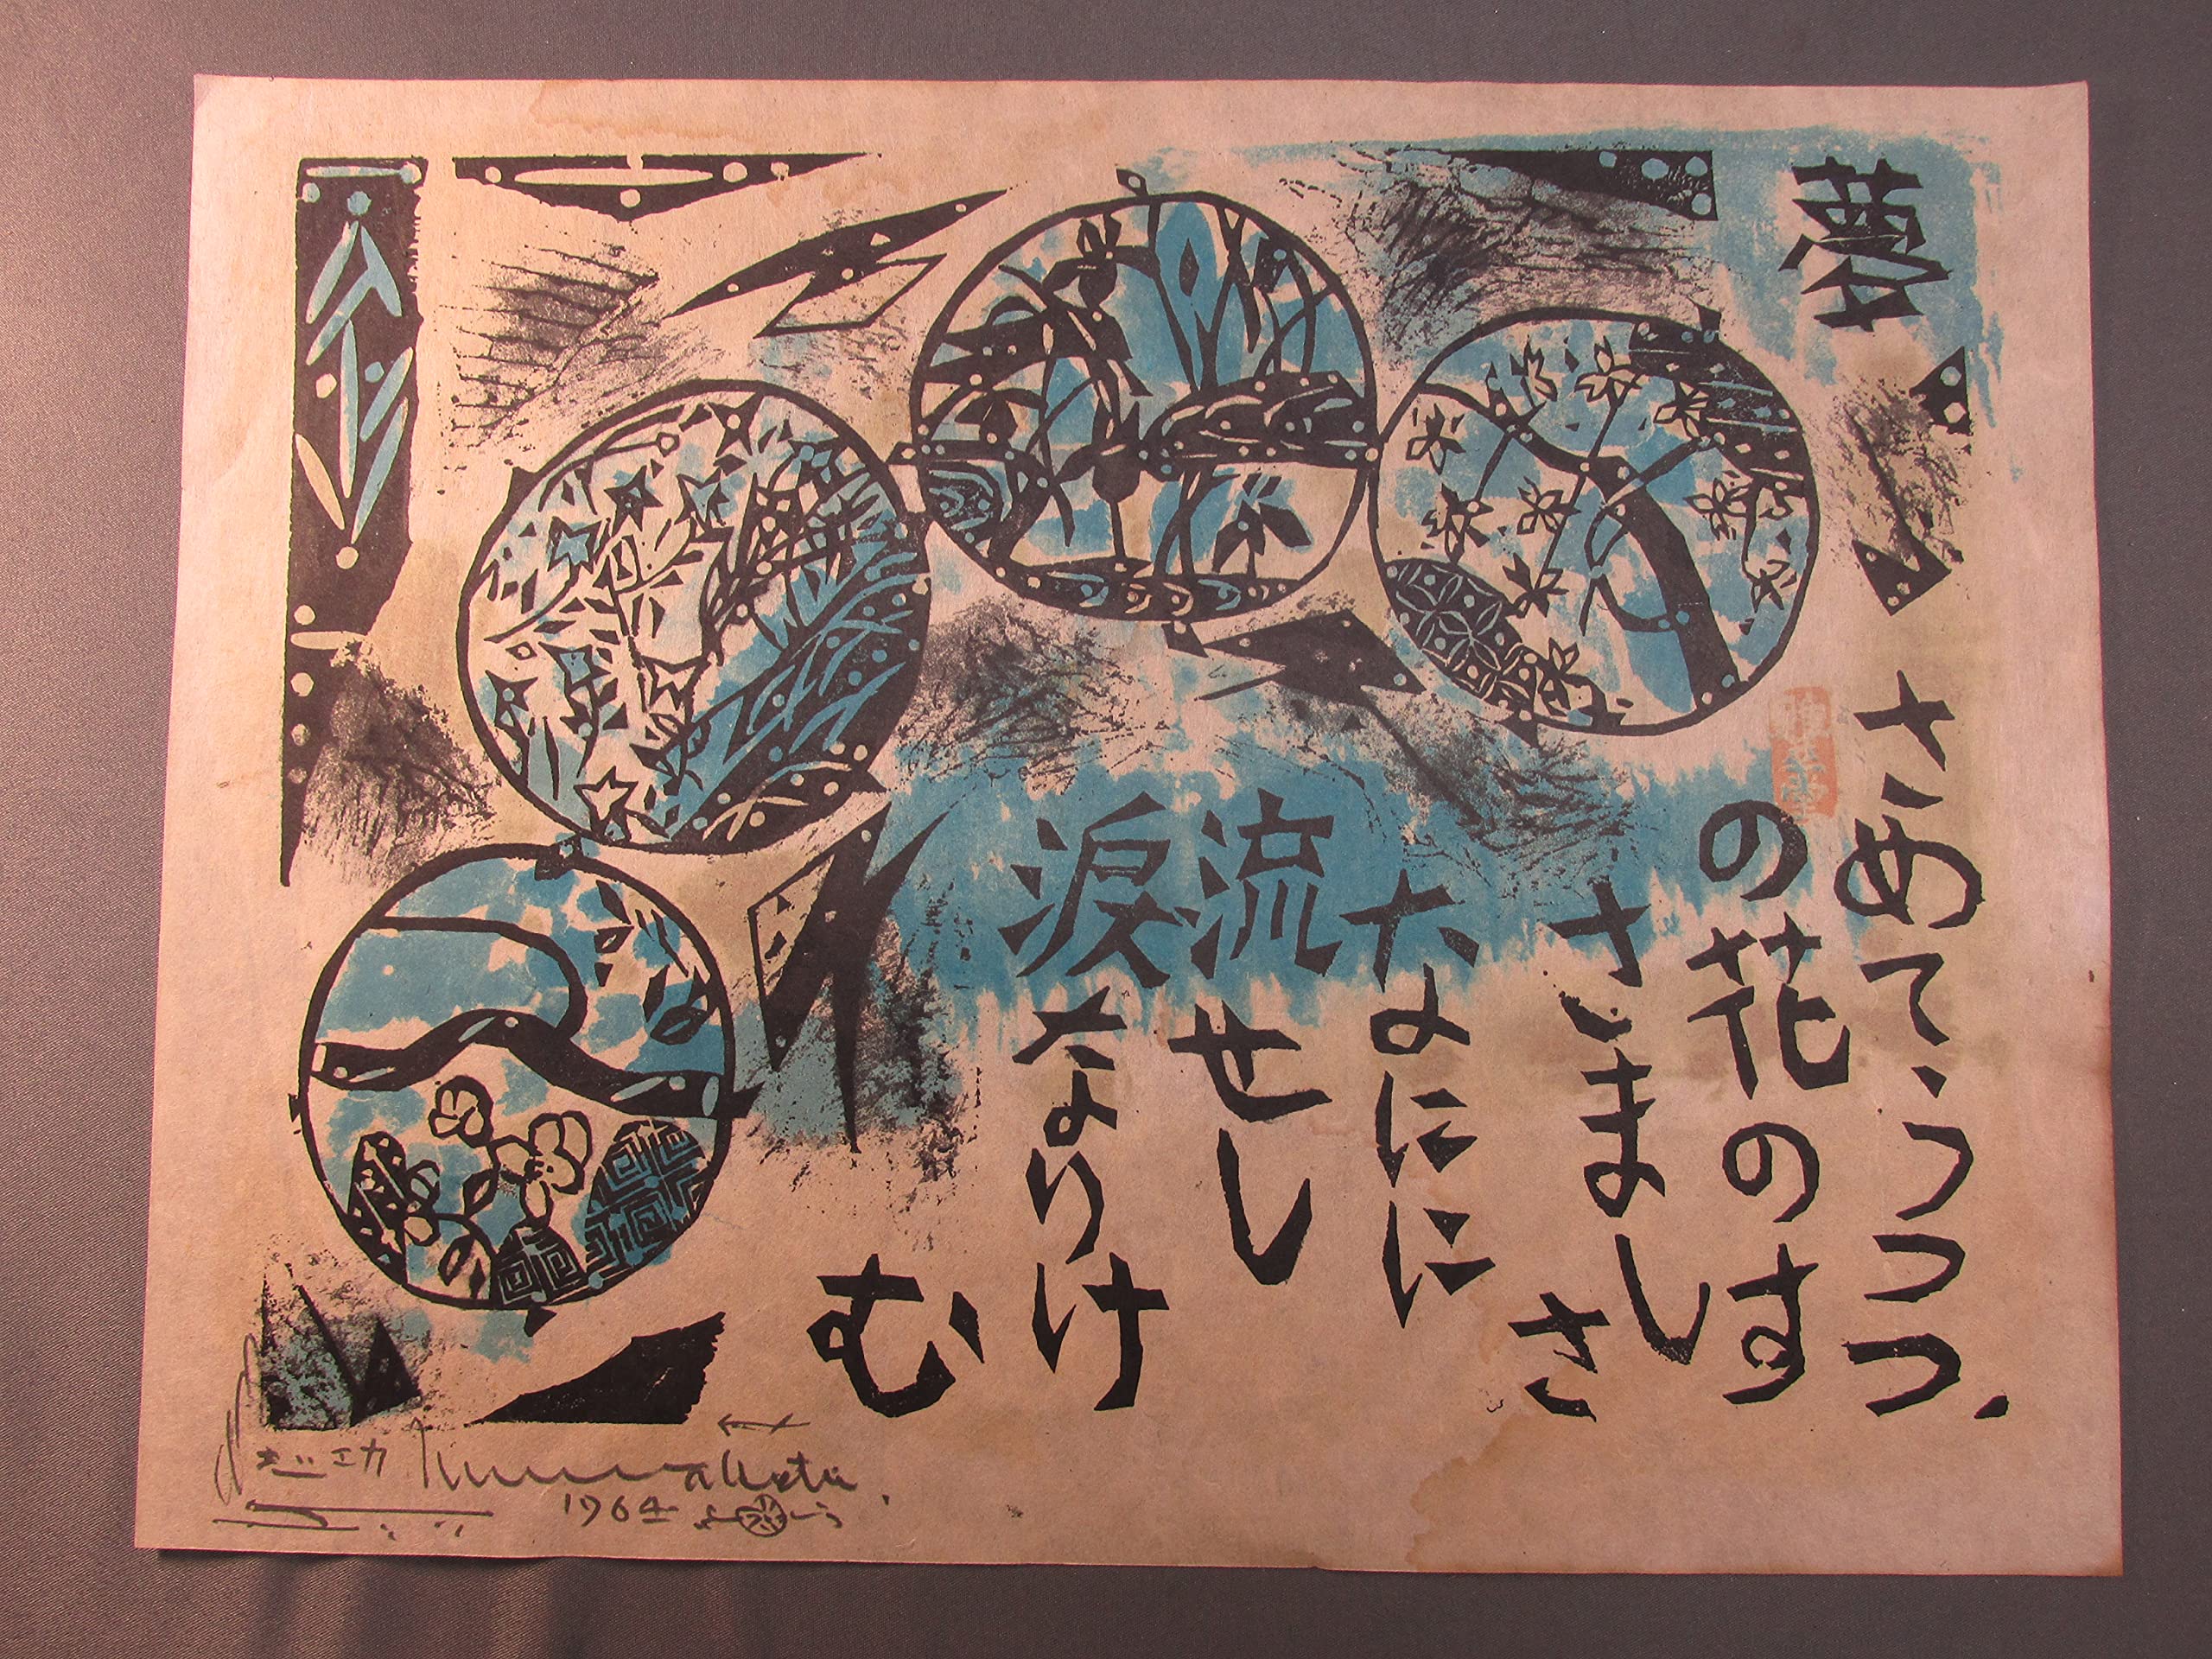 夢
さめて、うつつ、
の花のす
さましさ
なにに
流せし
涙なりけ
む
1964